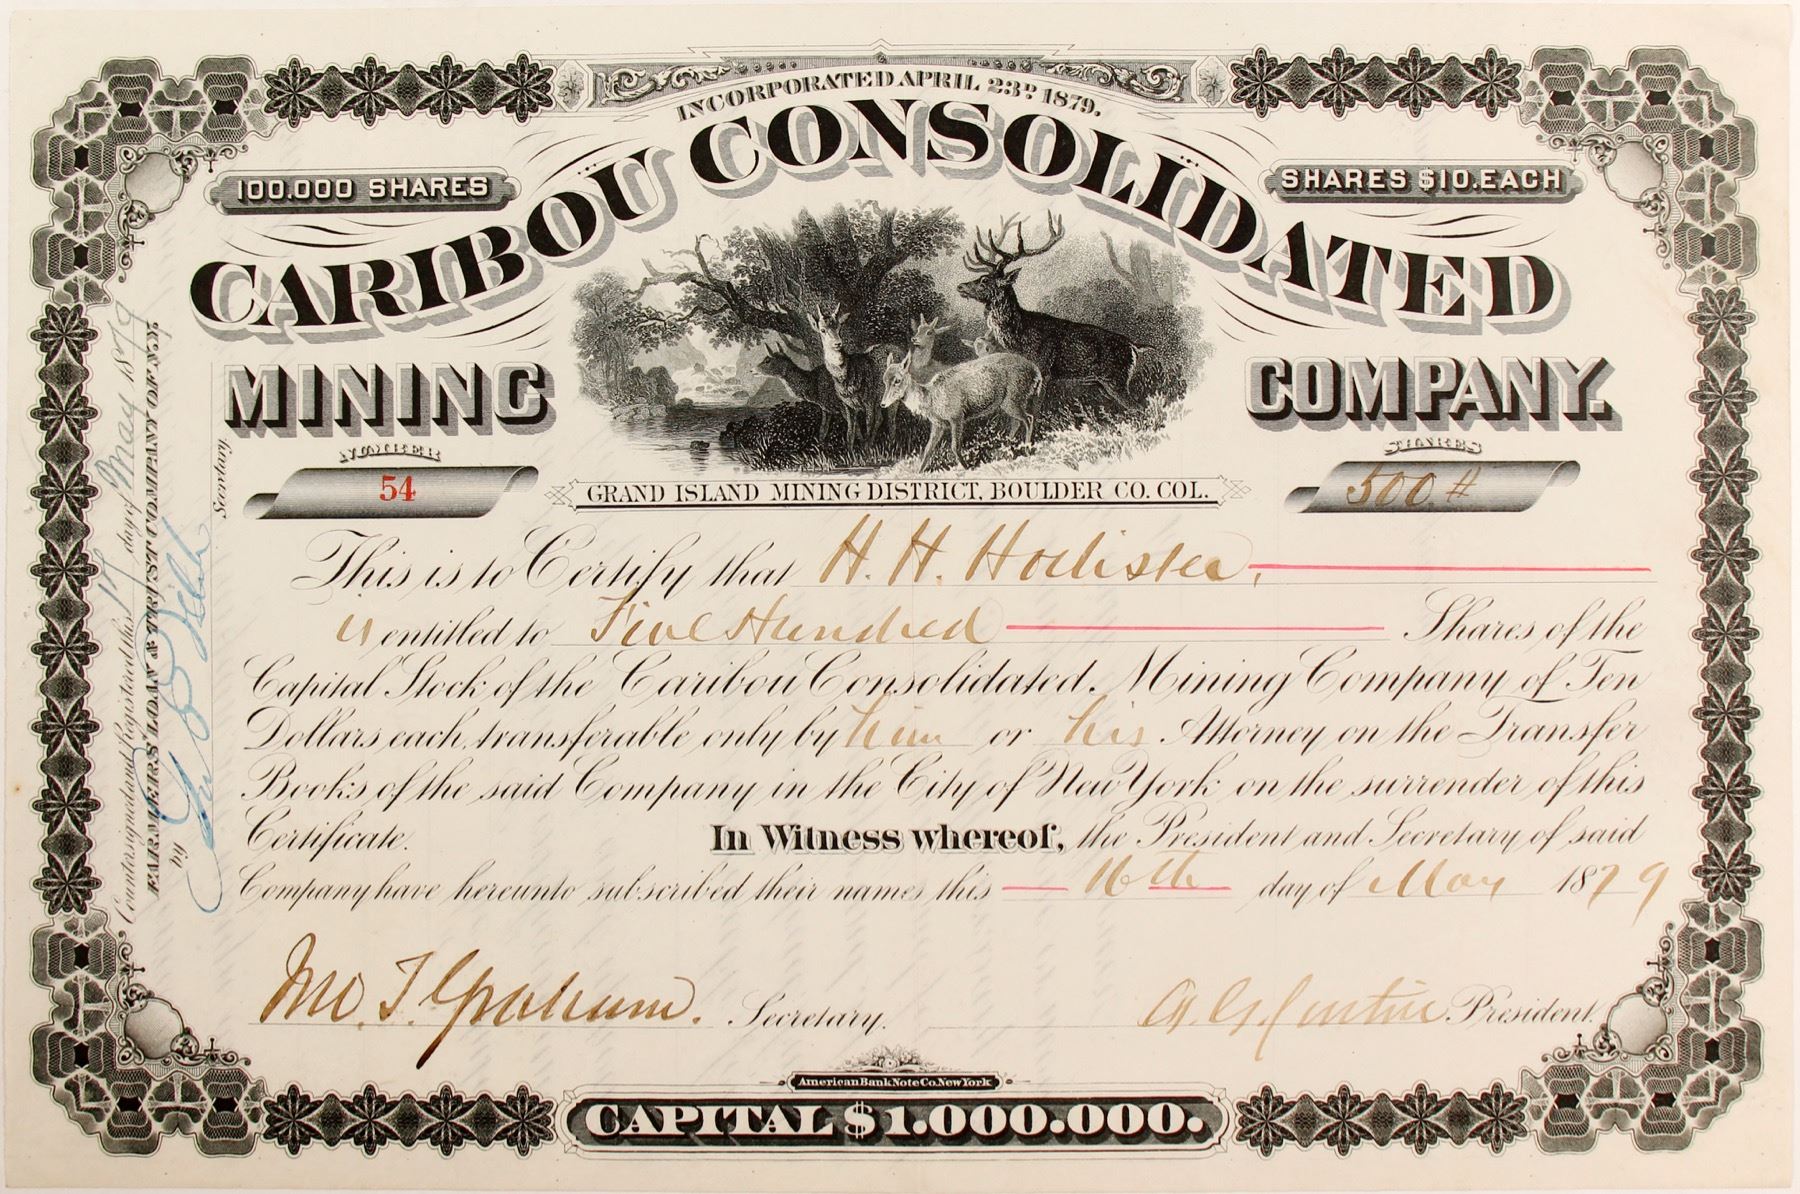 INCORPORATED APRIL 23D 1879.
100.000 SHARES
SHARES $10. EACH
CARIBOU CONSOLIDATED
MINING COMPANY.
NUMBER
54
SHARES
500.#
GRAND ISLAND MINING DISTRICT, BOULDER CO. COL.
This is to Certify that H. H. Hollister,
is entitled to Five Hundred Shares of the
Capital Stock of the Caribou Consolidated Mining Company of Ten
Dollars each, transferable only by him or his Attorney on the Transfer
Books of the said Company in the City of New York on the surrender of this
Certificate. In Witness whereof, the President and Secretary of said
Company have hereunto subscribed their names this 16th day of May 1879
Jno. T. Graham. Secretary.
President.
American Bank Note Co. New York
CAPITAL $1.000.000.
Countersigned and Registered this day of May 1879
FARMERS LOAN & TRUST COMPANY OF N.Y.
by
Secretary